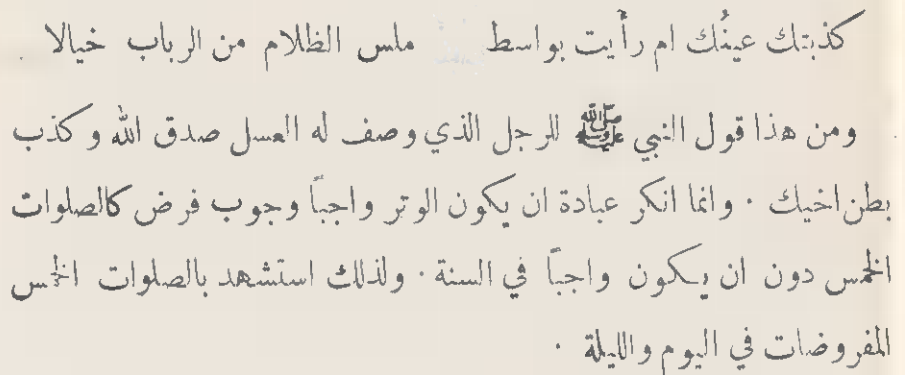 كذبتك عينُك ام رأيت بواسط ملس الظلام من الرباب خيالا .
ومن هذا قول النبي ﷺ للرجل الذي وصف له العسل صدق الله وكذب
بطن اخيك . وانما انكر عبادة ان يكون الوتر واجباً وجوب فرض كالصلوات
الخمس دون ان يكون واجباً في السنة . ولذلك استشهد بالصلوات الخمس
المفروضات في اليوم والليلة .